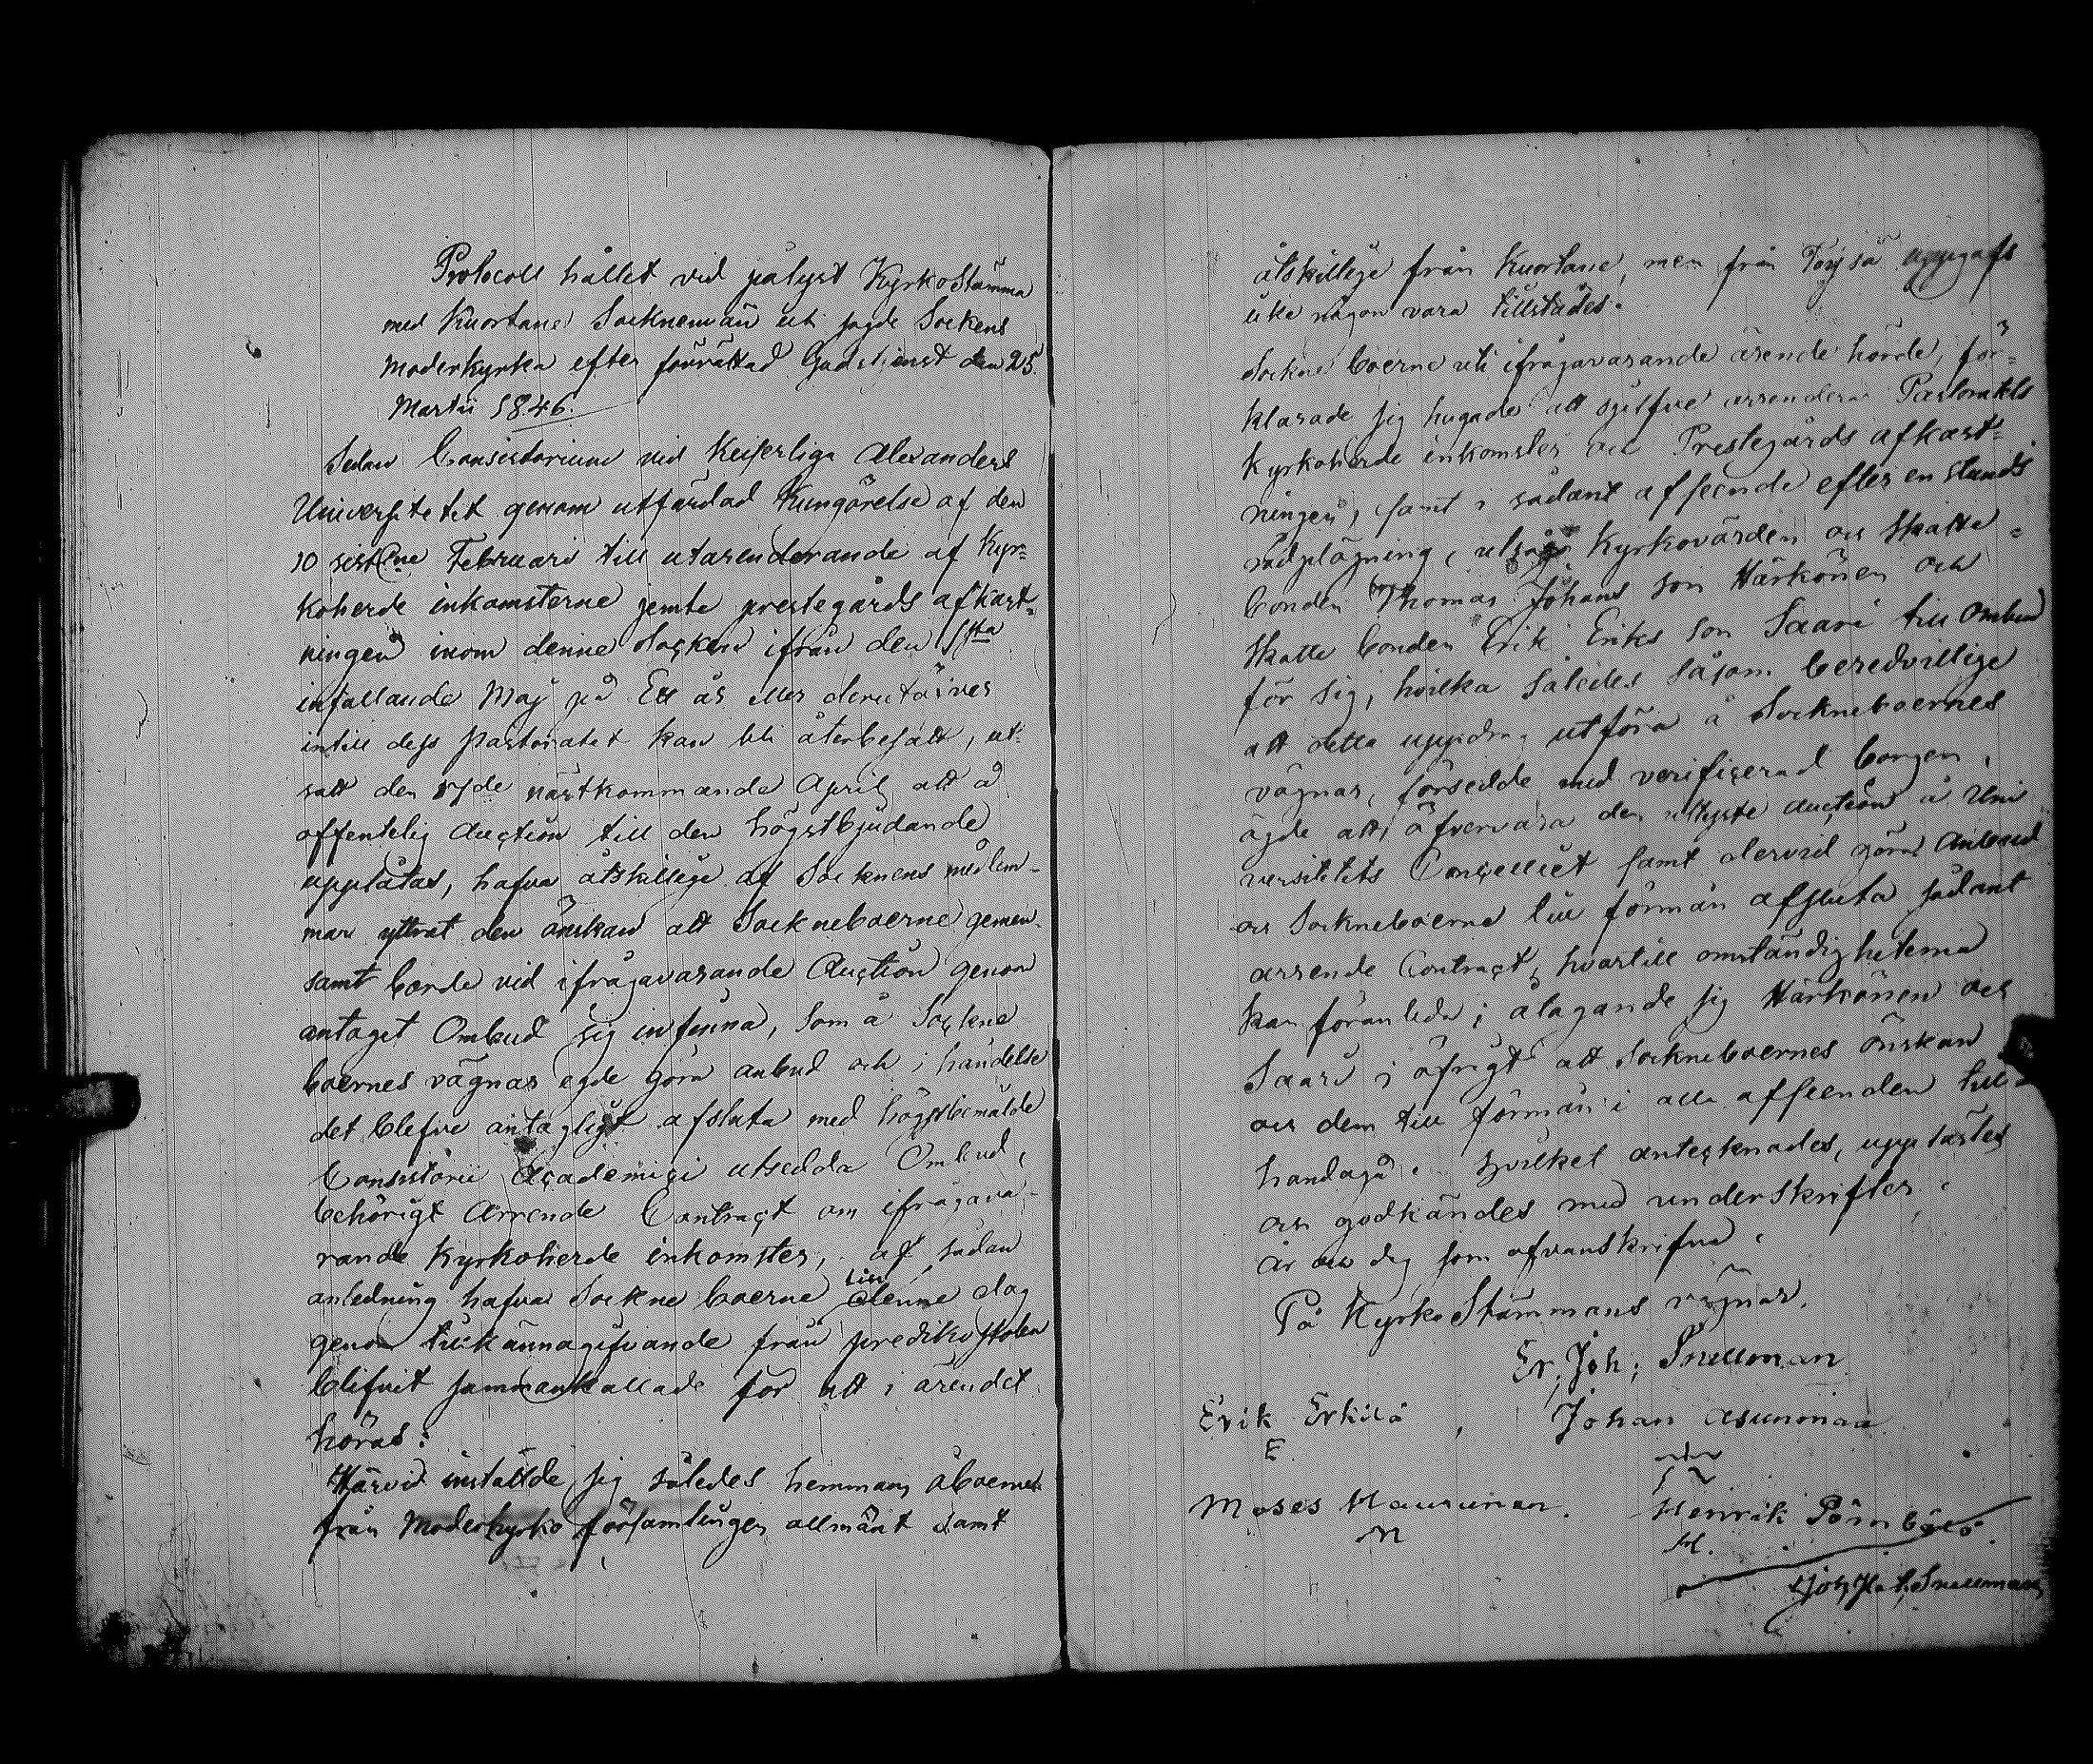 Protocoll hållet vid pålyst KyrkoStämma
med Kuortane Socknemän uti sagde Sockens
Moderkyrka efter förrättad Gudstjenst den 25.
Martii 1846.
Sedan Consistorium vid Kejserliga Alexanders
Universitetet genom utfärdad Kungörelse af den
10 sistl:ne Februari till utarenderande af Kyr=
koherde inkomsterne jemte prestegårds afkast=
ningen inom denne Socken ifrån den 1sta
infallande Maj på Ett år eller derutöfver
intill dess pastoratet kan bli återbesatt, ut-
satt den 17de nästkommande April att å
offentelig Auction till den högstbjudande
upplåtas, hafva åtskillige af Socknens medlem-
mar yttrat den önskan att Sockneboerne gemen-
samt borde vid ifrågavarande Auction genom
antaget Ombud sig infinna, som å Sockne-
boernes vägnar egde göra anbud och i händelse
det blefve antagligt afsluta med högstbemälde
Consistorii Academici utsedda Ombud,
behörigt Arrende Contract om ifrågava-
rande Kyrkoherde inkomster, af sådan
anledning hafva Sockne boerne till denne dag
genom tillkännagifvande från predikostolen
blifvit sammankallade för att i ärendet
höras:
Härvid instälde sig således hemmans åboerne
från Moderkyrko församlingen allmänt samt
åtskillige från Kuortane, men från Töysä uppgafs
icke någon vara tillstädes.
Sockne boerne uti ifrågavarande ärende hörde, för=
klarade sig hugade att sjelfve arrendera Pastoratets
Kyrkoherde inkomster och Prestegårds afkast=
ningen, samt i sådant afseende efter en stunds
rådplägning, utsågo Kyrkovärden och Skatte=
bonden Thomas Johans son Härkönen och
Skatte bonden Erik Eriks son Saari till Ombud
för sig, hvilka således såsom beredvillige
att detta uppdrag utföra å Sockneboernes
vägnar, försedde med verificerad borgen,
ägde att öfvervara den utlyste Auction å Uni
versitetets Cancelliet samt dervid göra Anbud
och Sockneboerne till förmån afsluta sådant
arrende Contract, hvartill omständigheterna
kan föranleda; åtagande sig Härkönen och
Saari i öfrigt att Sockneboernes önskan
och dem till förmån i alla afseenden till
handagå. Hvilket antecknades, upplästes
och godkändes med underskrifter.
År och dag som ofvanskrifne.
På KyrkoStämmans vägnar.
Er. Joh: Snellman
Erik Erkilä, Johan Asunmaa
E
Moses Haurunen. Henrik
M H.
Joh, Snellman